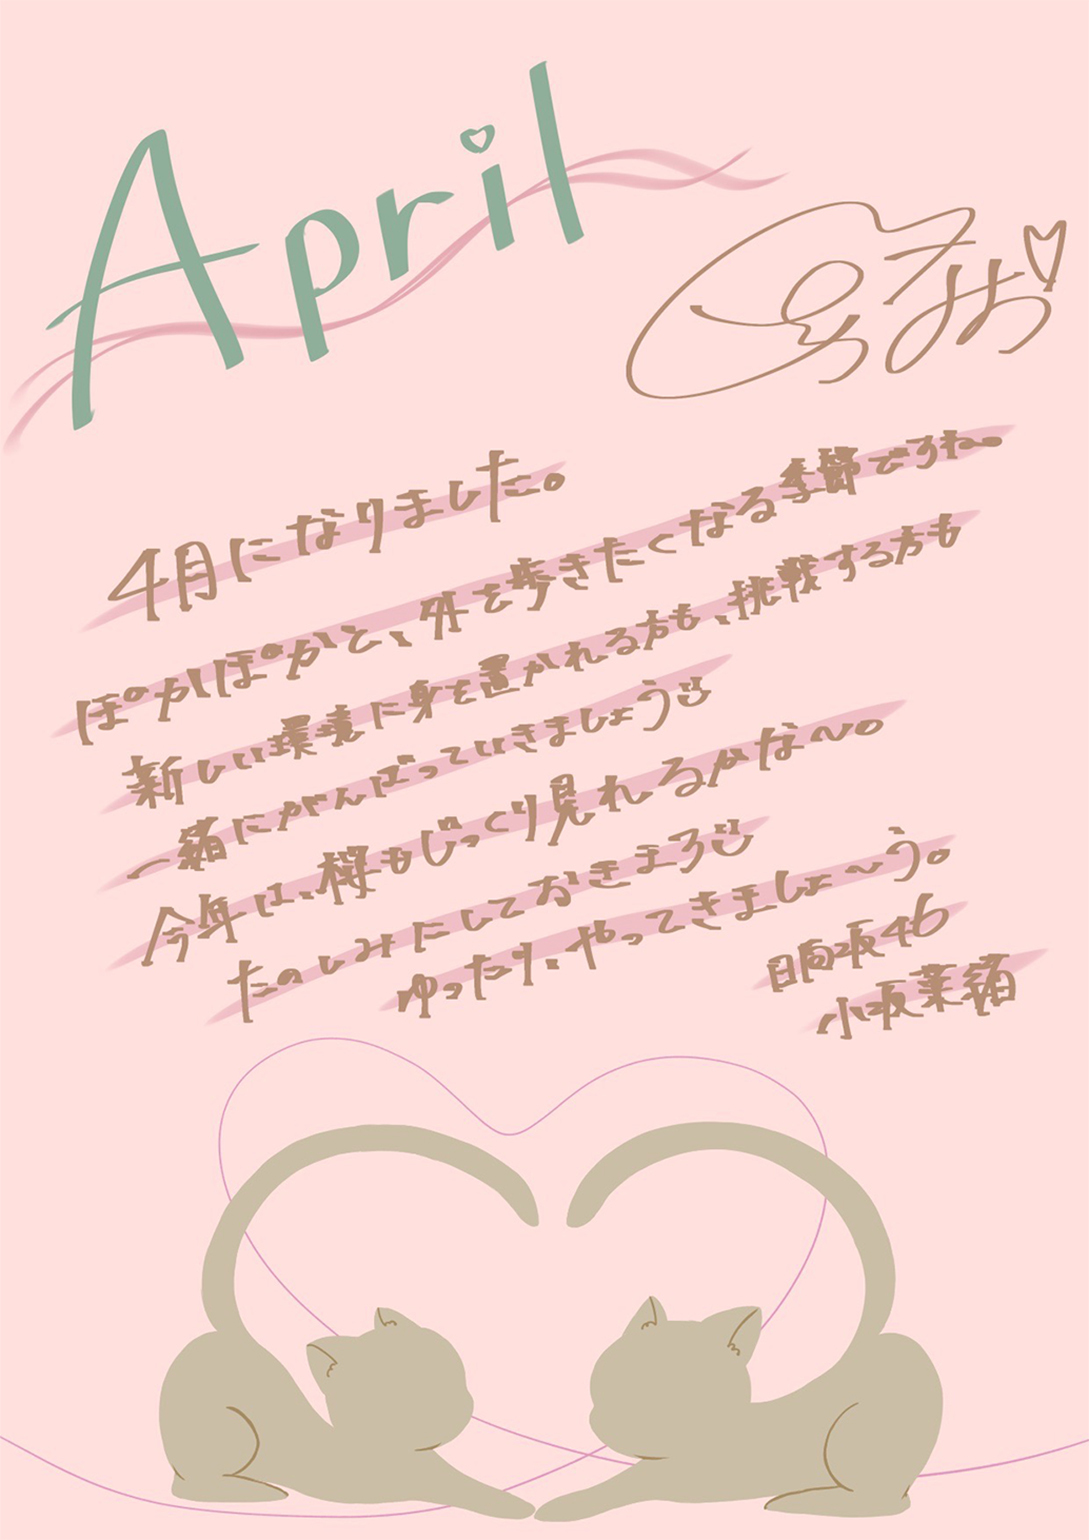 April
4月になりました。
ぽかぽかと、外を歩きたくなる季節ですね。
新しい環境に身を置かれる方も、挑戦する方も
一緒にがんばっていきましょう
今年は、桜もじっくり見れるかな〜。
たのしみにしておきまろ
ゆったり、やってきましょ〜う。
日向坂46
小坂菜緒